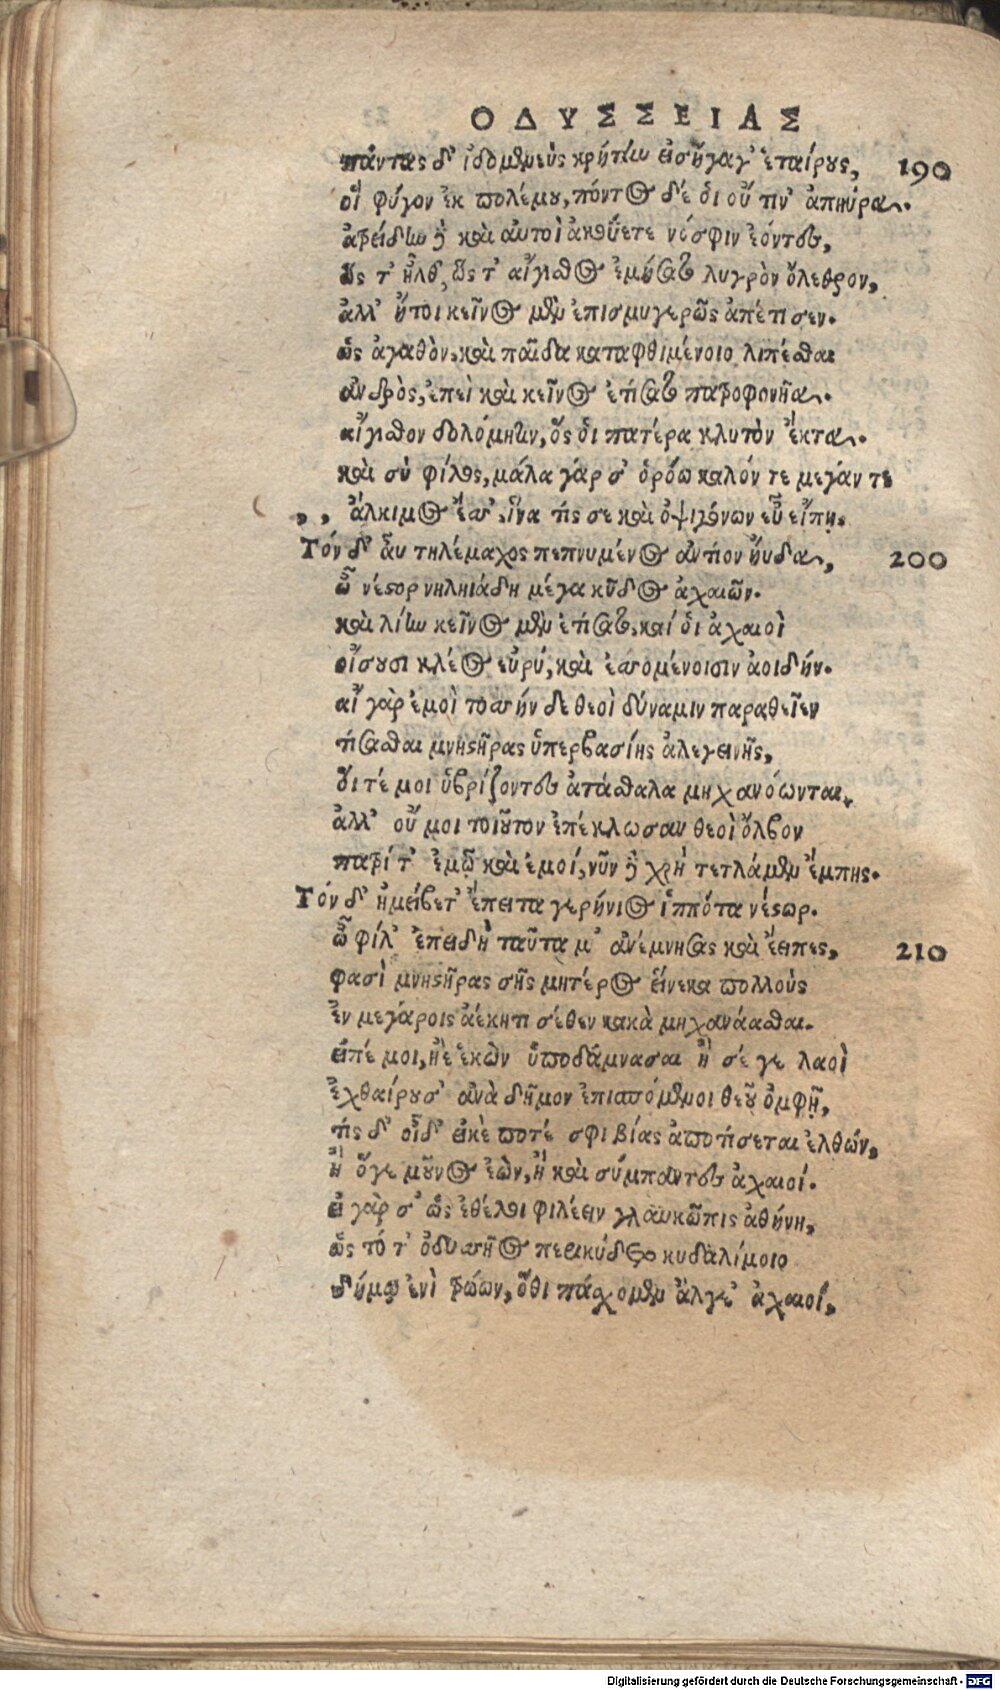 ΟΔΥΣΣΕΙΑΣ
πάντας δ' ἰδομενεὺς κρήτην εἰσήγαγ' ἑταίρους, 190
οἳ φύγον ἐκ πολέμου, πόντος δέ οἱ οὔ τιν' ἀπηύρα.
ἀτρείδην δὲ καὶ αὐτοὶ ἀκούετε νόσφιν ἐόντες,
ὥς τ' ἦλθ', ὥς τ' αἴγισθος ἐμήσατο λυγρὸν ὄλεθρον,
ἀλλ' ἤτοι κεῖνος μὲν ἐπισμυγερῶς ἀπέτισεν.
ὡς ἀγαθὸν, καὶ παῖδα καταφθιμένοιο λιπέσθαι
ἀνδρὸς, ἐπεὶ καὶ κεῖνος ἐτίσατο πατροφονῆα.
αἴγισθον δολόμητιν, ὅς οἱ πατέρα κλυτὸν ἔκτα.
καὶ σὺ φίλος, μάλα γάρ σ' ὁρόω καλόν τε μεγάν τε
,, ἄλκιμος ἔσσ', ἵνα τίς σε καὶ ὀψιγόνων εὖ εἴπῃ.
Τόν δ' αὖ τηλέμαχος πεπνυμένος ἀντίον ηὔδα, 200
ὦ νέστορ νηληιάδη μέγα κῦδος ἀχαιῶν.
καὶ λίην κεῖνος μὲν ἐτίσατο, καί οἱ ἀχαιοὶ
οἴσουσι κλέος εὐρύ, καὶ ἐσσομένοισιν ἀοιδήν.
αἲ γὰρ ἐμοὶ τοσσήνδε θεοὶ δύναμιν παραθεῖεν
τίσασθαι μνηστῆρας ὑπερβασίης ἀλεγεινῆς,
οἵτέ μοι ὑβρίζοντες ἀτάσθαλα μηχανόωνται.
ἀλλ' οὔ μοι τοιοῦτον ἐπέκλωσαν θεοὶ ὄλβον
πατρί τ' ἐμῷ καὶ ἐμοί, νῦν δὲ χρὴ τετλάμεν ἔμπης.
Τόν δ' ἠμείβετ' ἔπειτα γερήνιος ἱππότα νέστωρ.
ὦ φίλ' ἐπειδὴ ταῦτα μ' ἀνέμνησας καὶ ἔειπες, 210
φασὶ μνηστῆρας σῆς μητέρος εἵνεκα πολλοὺς
ἐν μεγάροις ἀέκητι σέθεν κακὰ μηχανάασθαι.
εἰπέ μοι, ἠὲ ἑκὼν ὑποδάμνασαι ἢ σέ γε λαοὶ
ἐχθαίρουσ' ἀνὰ δῆμον ἐπισπόμενοι θεοῦ ὀμφῇ,
τίς δ' οἶδ' εἰκέ ποτέ σφι βίας ἀποτίσεται ἐλθών,
ἢ ὅγε μοῦνος ἐὼν, ἢ καὶ σύμπαντες ἀχαιοί.
εἰ γὰρ σ' ὣς ἐθέλοι φιλέειν γλαυκῶπις ἀθήνη,
ὡς τό τ' ὀδυσσῆος περικύδεος κυδαλίμοιο
δήμῳ ἐνὶ τρώων, ὅθι πάσχομεν ἄλγε' ἀχαιοί,
Digitalisierung gefördert durch die Deutsche Forschungsgemeinschaft - DFG